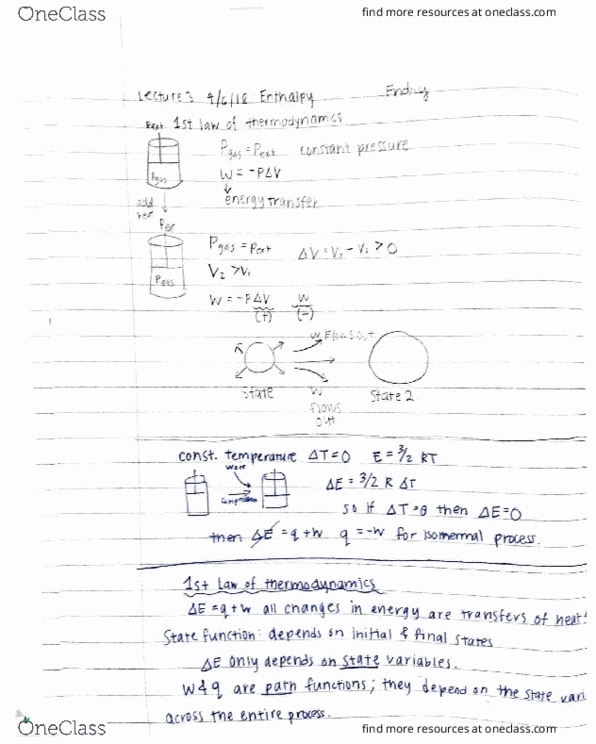 OneClass
find more resources at oneclass.com
Lecture 3 4/6/18 Enthalpy
1st law of thermodynamics
Pgas = Pext constant pressure
Pgas
W = -PΔV
energy transfer
add heat
Pext
Pgas = Pext ΔV = V₂ - V₁ > 0
Pgas
V₂ > V₁
W = -PΔV W
(+) (-)
W Flows out
State
W flows out
State 2
const. temperature ΔT=0 E = 3/2 RT
Work
ΔE = 3/2 R ΔT
compression
so if ΔT = 0 then ΔE=0
then ΔE = q + w q = -w for isothermal process.
1st Law of thermodynamics
ΔE = q + w all changes in energy are transfers of heat!
State function: depends on initial & final states
ΔE only depends on state variables.
W & q are path functions; they depend on the state vari
across the entire process.
OneClass
find more resources at oneclass.com